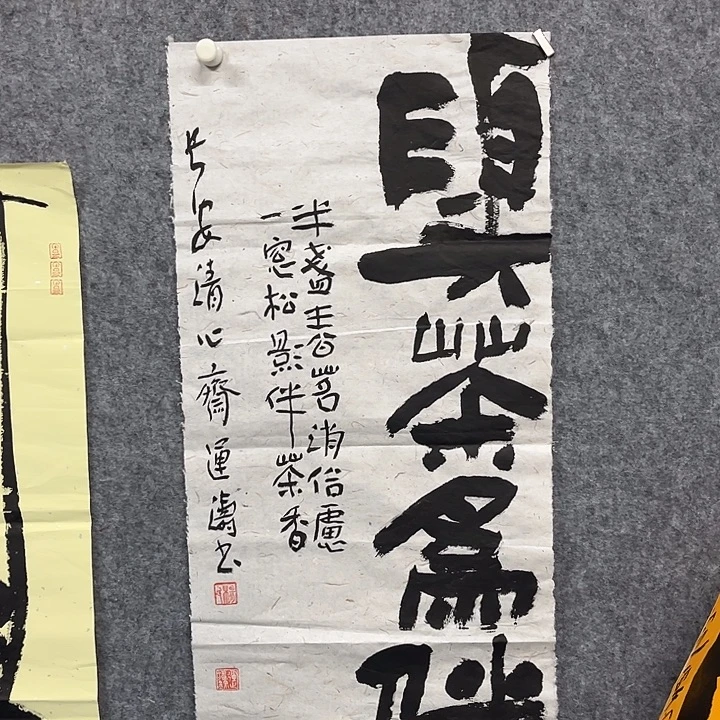 與茶為
半盞春茗消俗慮
一窓松影伴茶香
长安清心齋運濤书